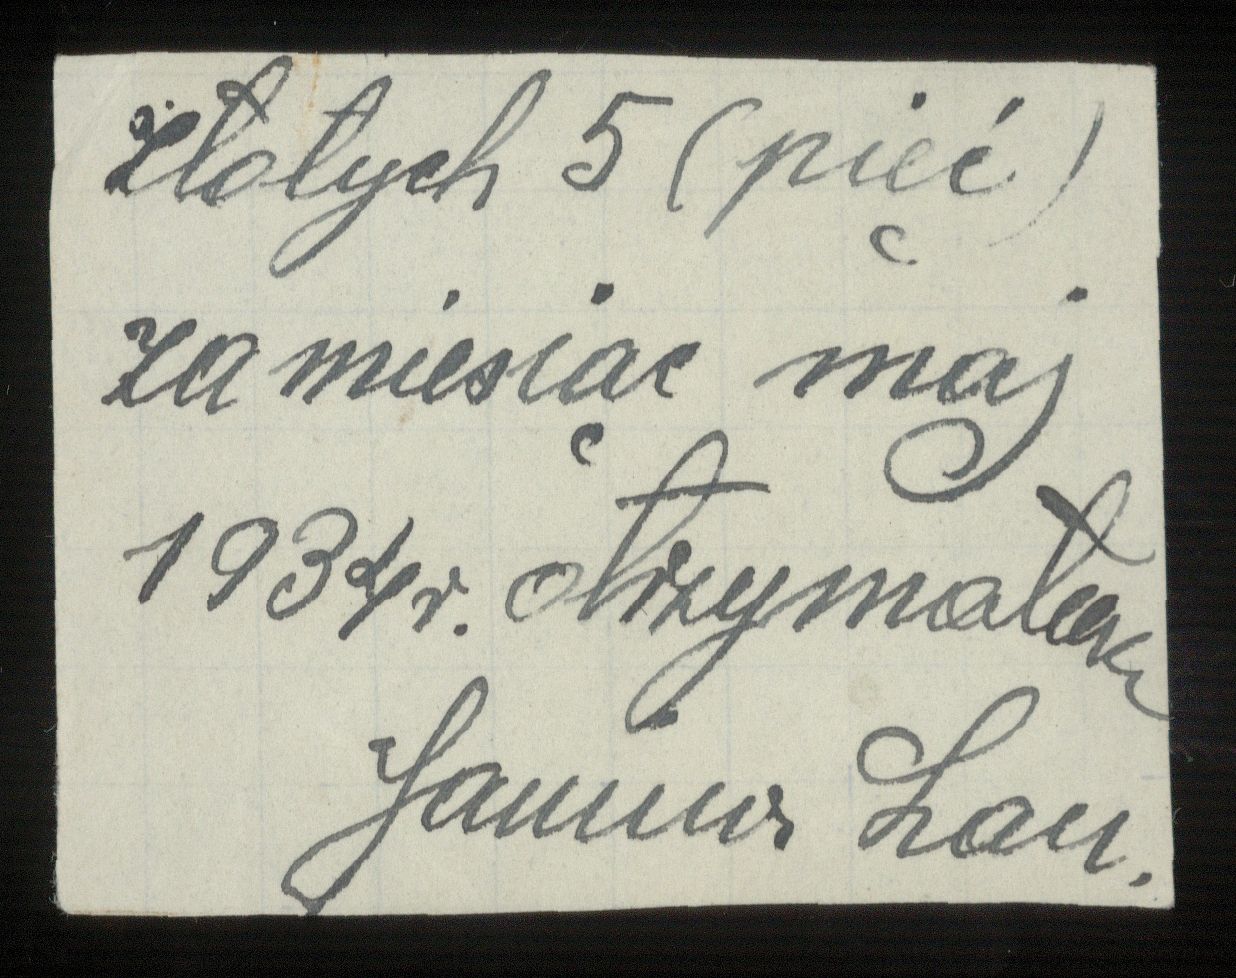 złotych 5 (pięć)
za miesiąc maj
1934 r. otrzymałem
Lau.